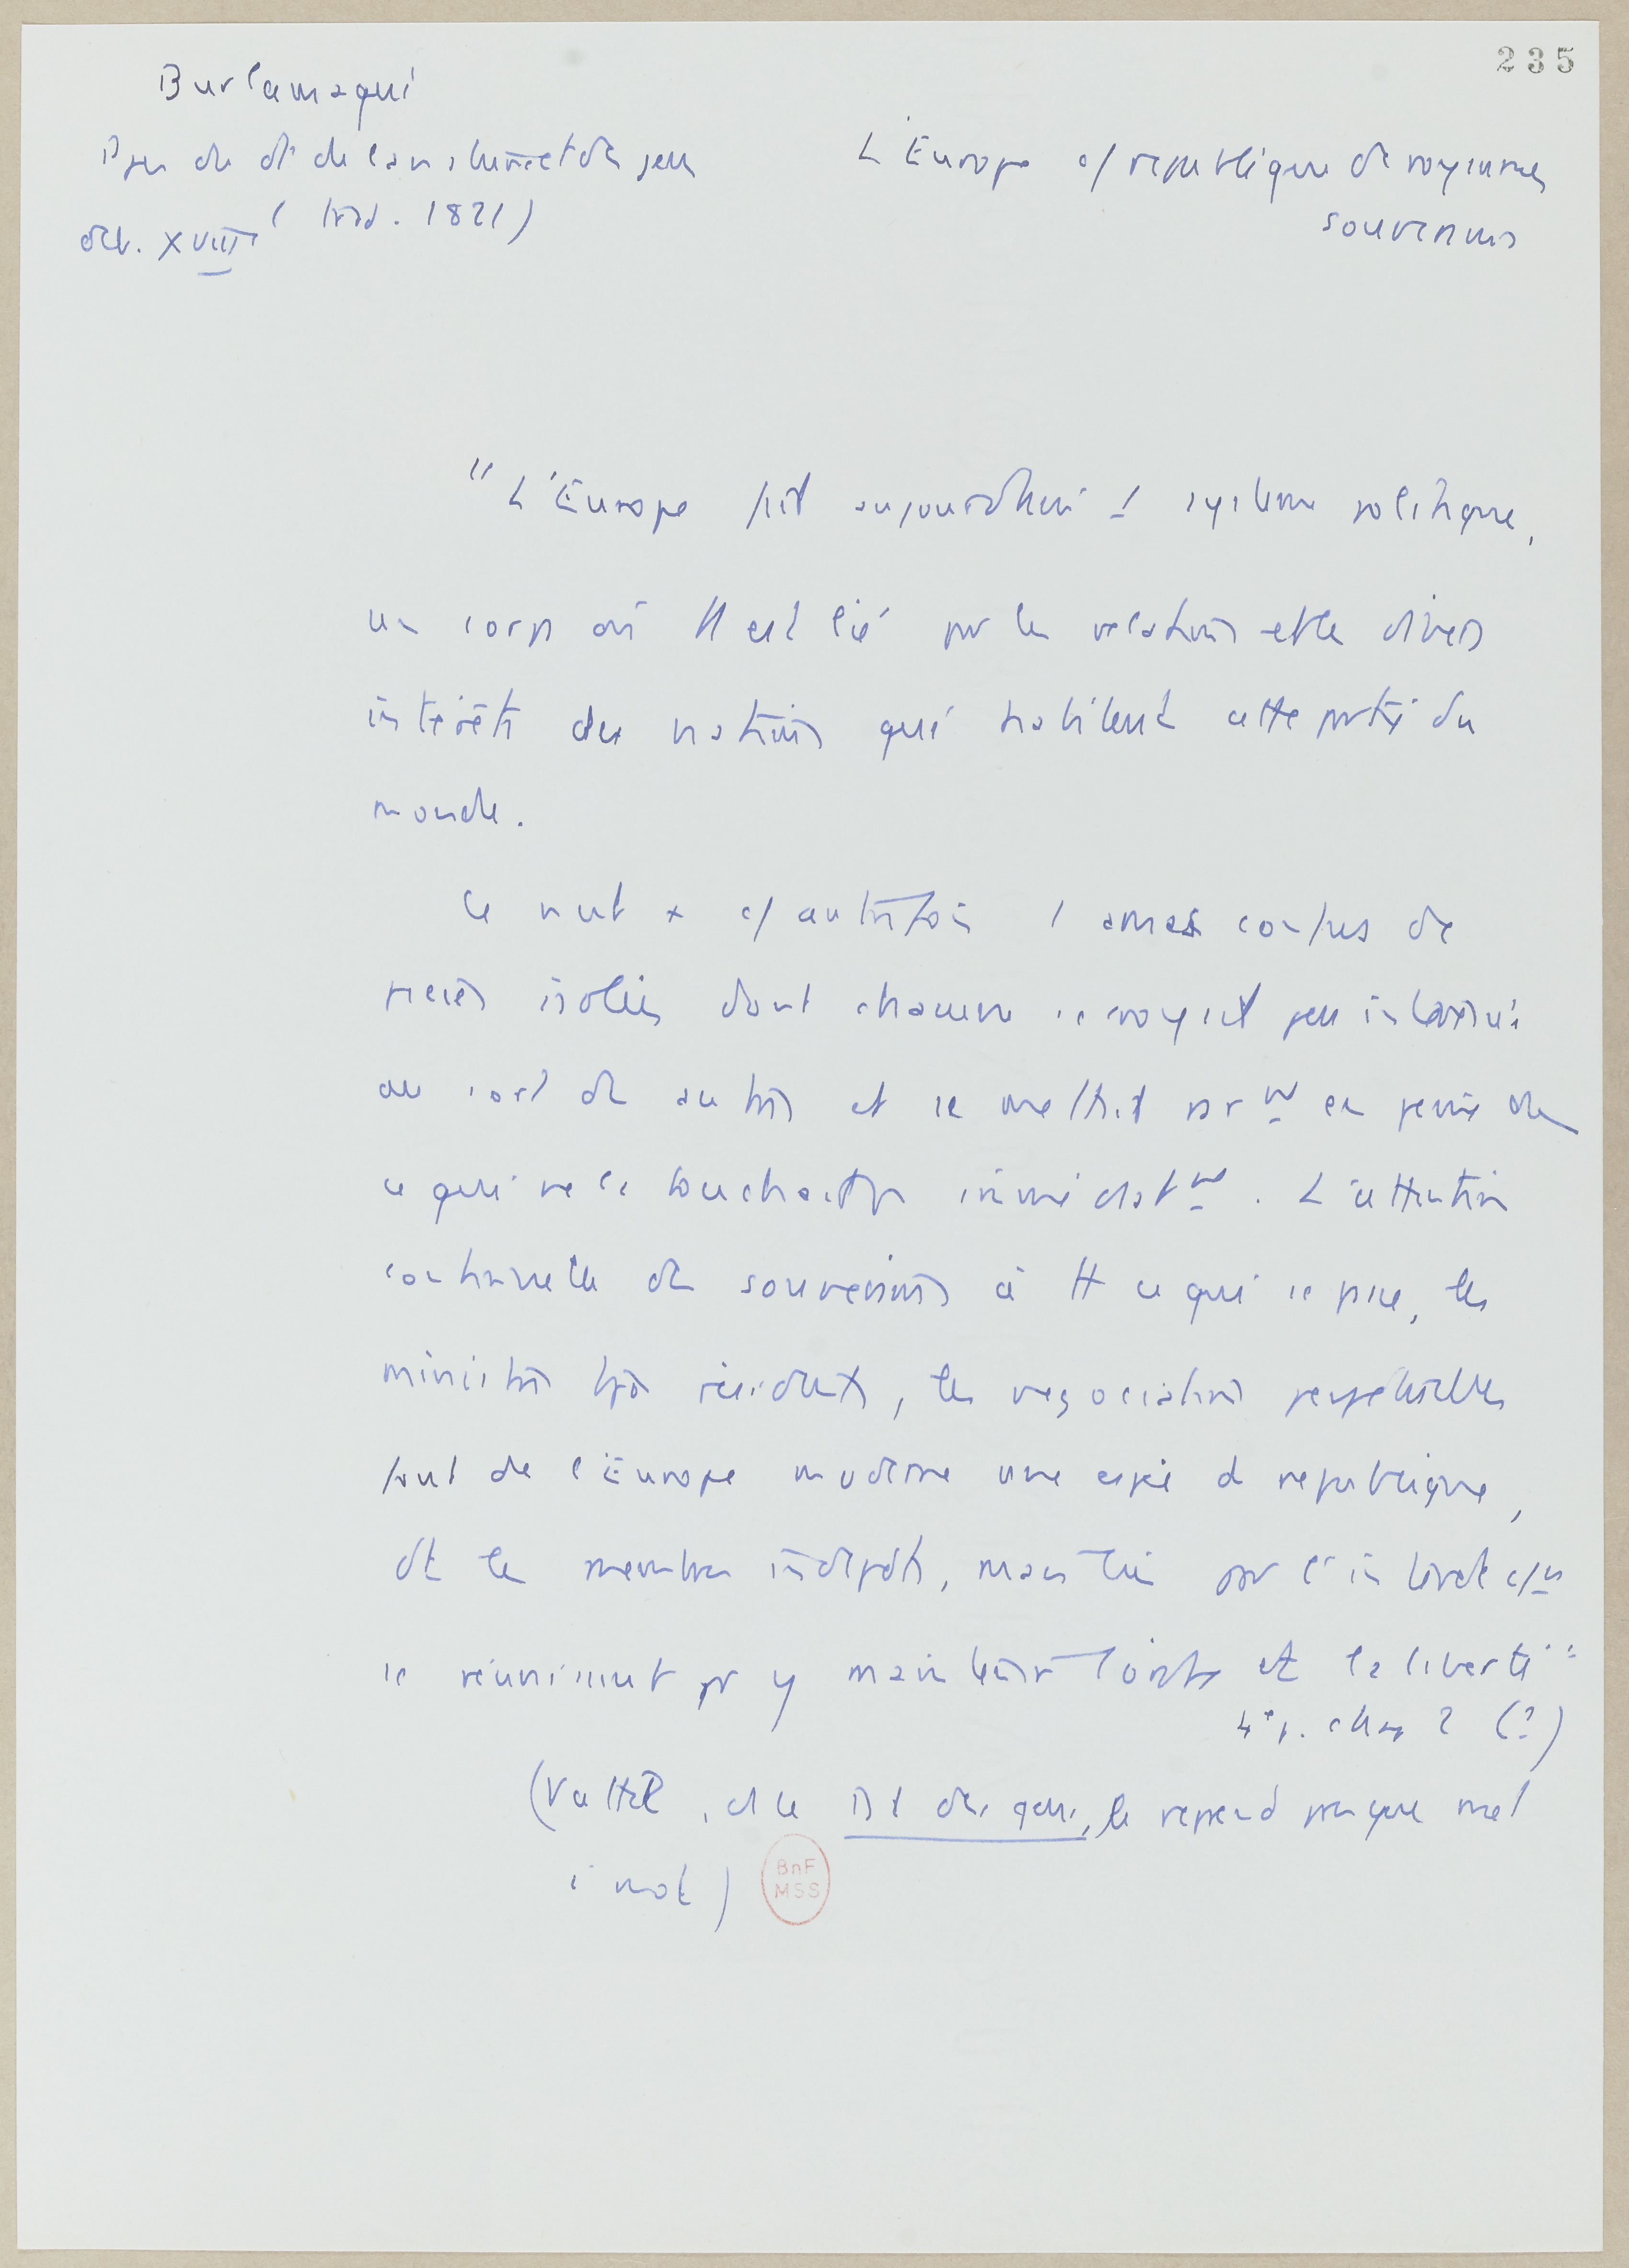 235
Burlamaqui
Ppes du dt de la nature et des gens
déb. XVIII (trad. 1821)
L'Europe c/ republique de royaumes
souverains
"L'Europe fait aujourd'hui 1 systeme politique,
un corps où tt est lié par les relations et les divers
intérêts des nations qui habitent cette partie du
monde.
Ce n'est x c/ autrefois 1 amas confus de
pieces isolées dont chacune se croyait peu intéressée
au sort des autres et se mettait rarmt en peine de
ce qui ne la touchait pas immédiatmt. L'attention
continuelle des souverains à tt ce qui se passe, les
ministres tjrs résidents, les negociations perpétuelles
font de l'Europe moderne une espèce de republique,
dt les membres indépdts, mais liés par l'intérêt c/un
se réunissent pr y maintenir l'ordre et la liberté"
4e p. chap 2 (?)
(Vattel, ds le Dt des gens, le reprend presque mot
à mot)
BnF
MSS